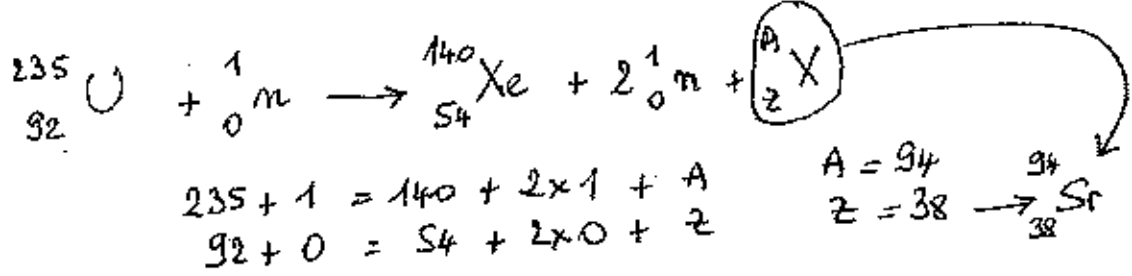 ²³⁵₉₂U + ¹₀n → ¹⁴⁰₅₄Xe + 2 ¹₀n + ᴬ_Z X
235 + 1 = 140 + 2×1 + A    A = 94
92 + 0 = 54 + 2×0 + Z    Z = 38 → ⁹⁴₃₈Sr